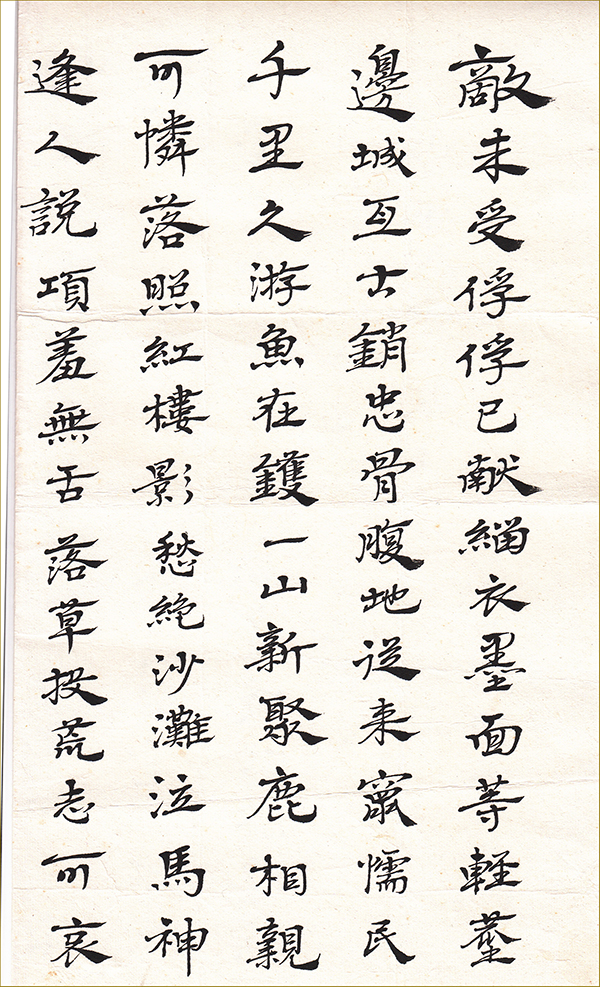 敵未受俘俘已献緇衣墨面等輕塵
邊城亙古銷忠骨腹地從来竄懦民
千里久游魚在鑊一山新聚鹿相親
可憐落照紅樓影愁絶沙灘泣馬神
逢人説項羞無舌落草投荒志可哀